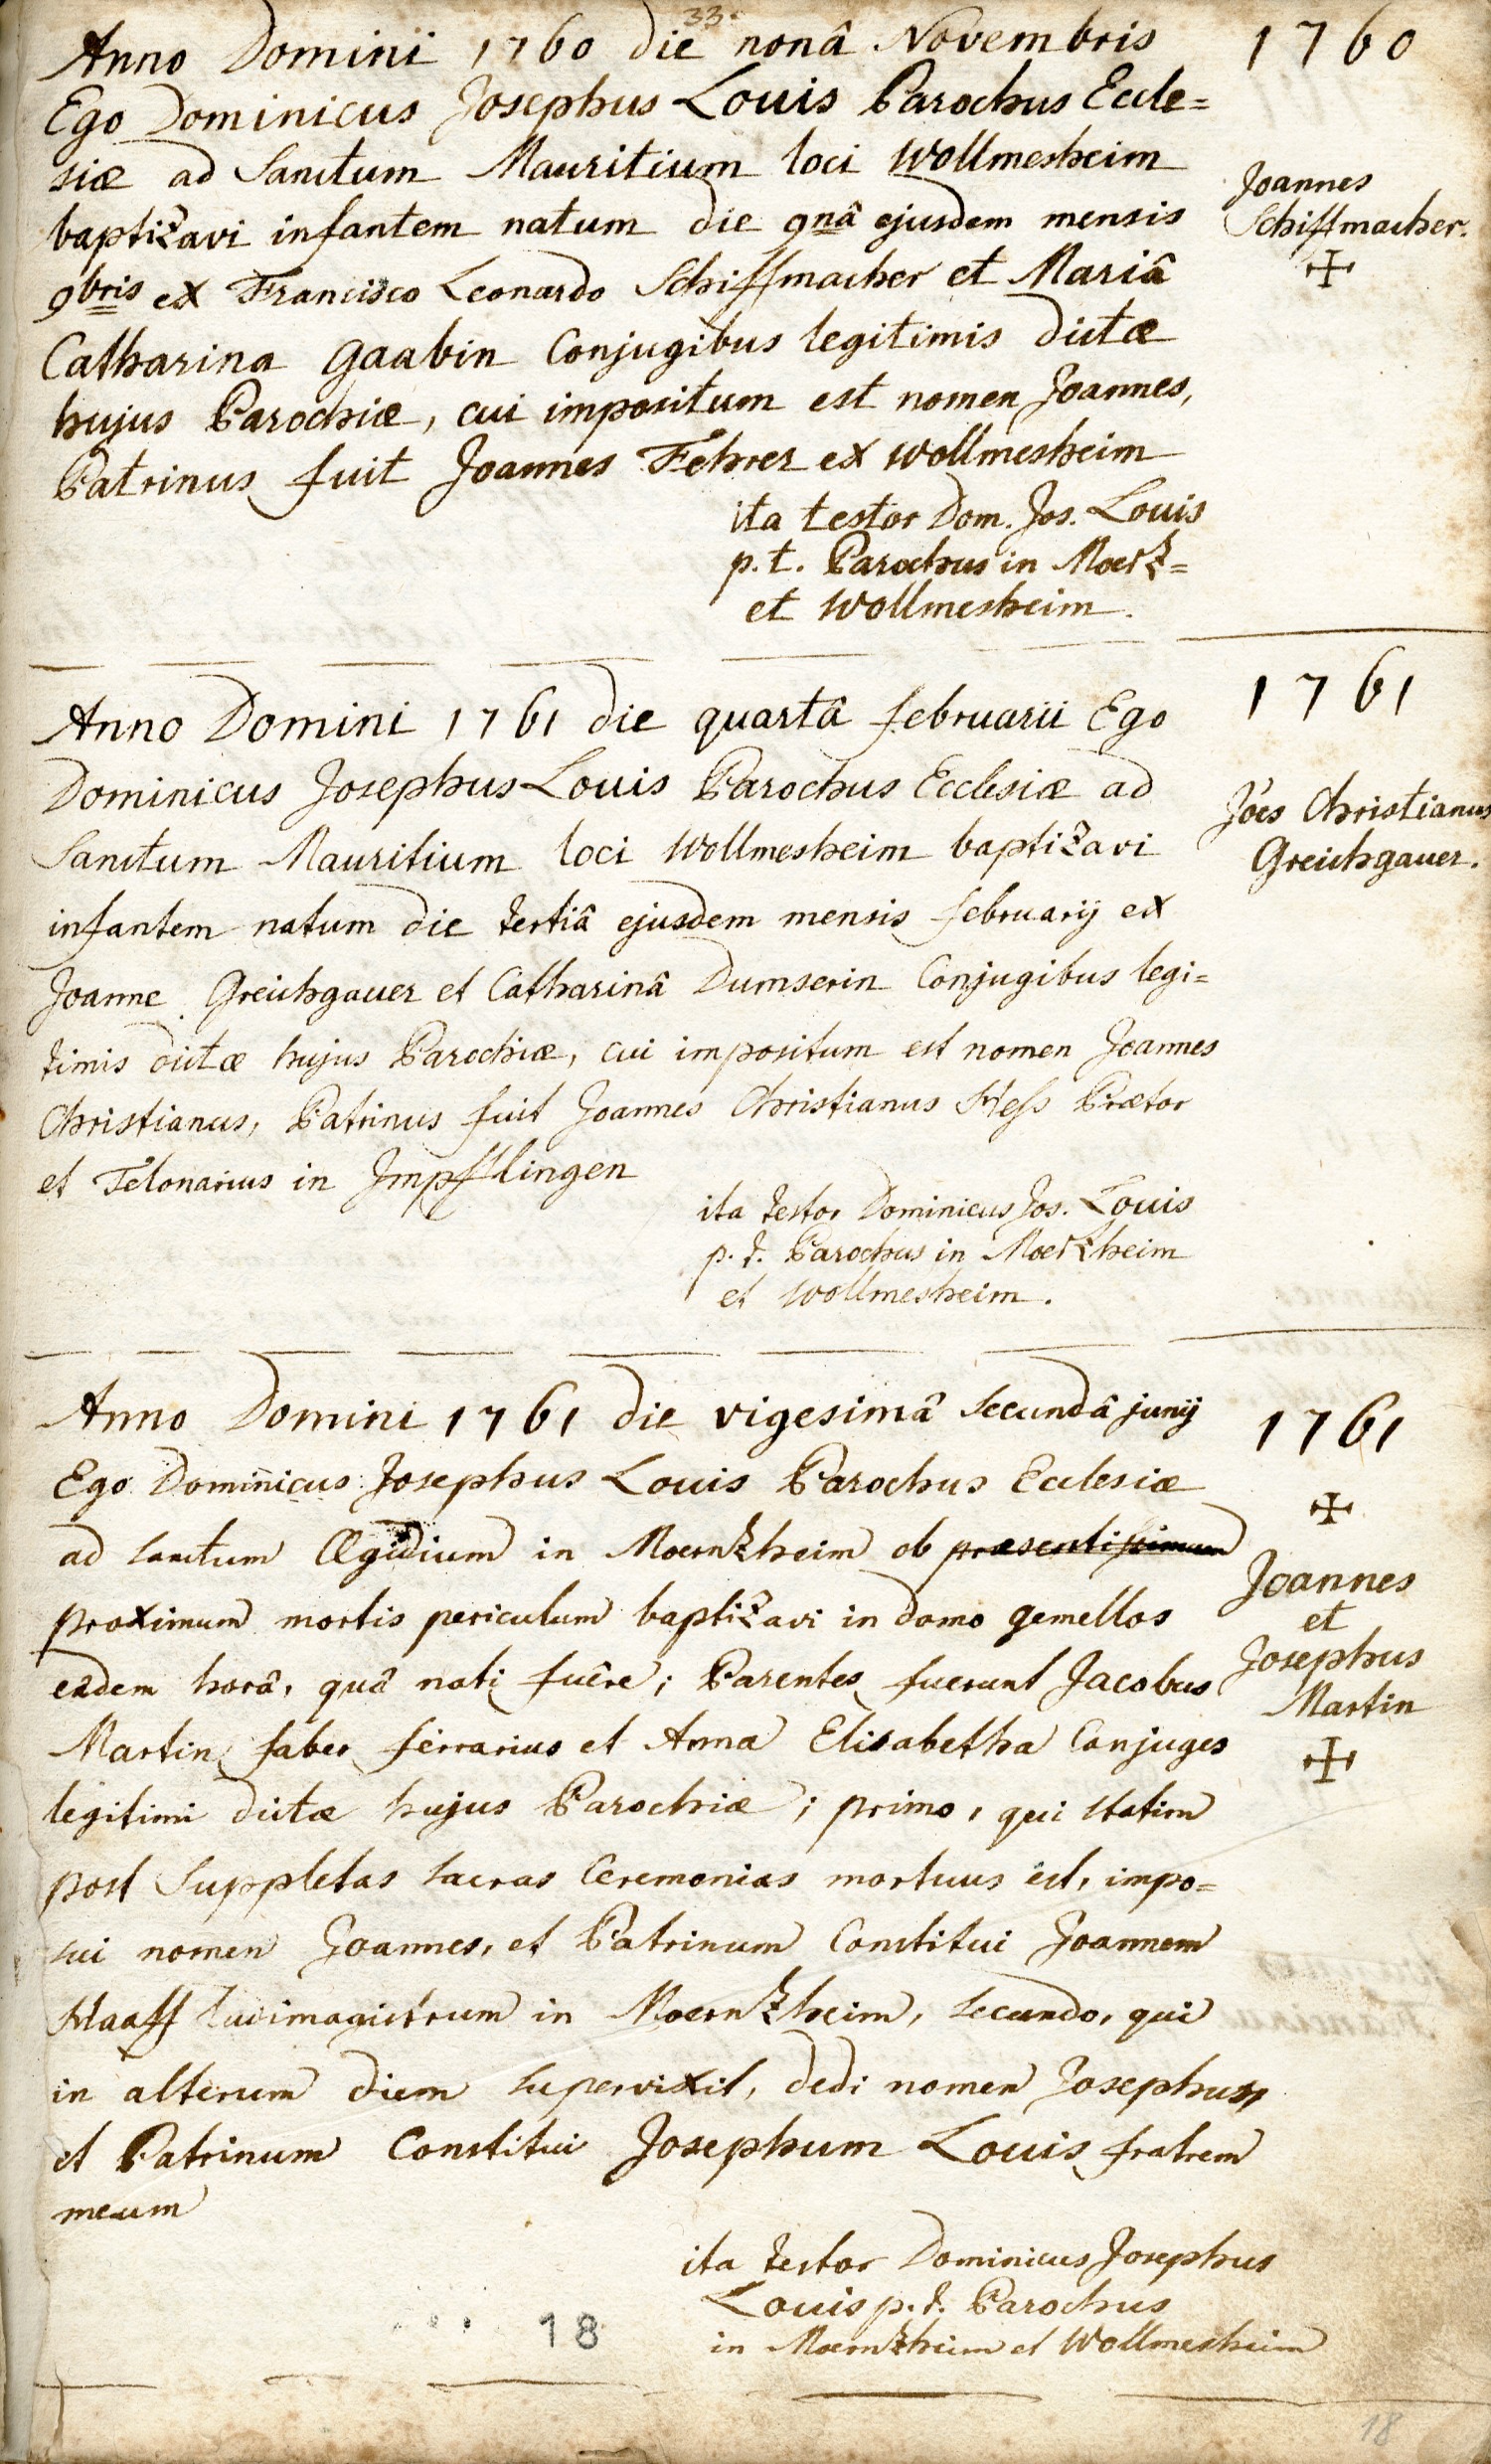 33.
Anno Domini 1760 die nonâ Novembris
1760
Ego Dominicus Josephus Louis Parochus Eccle=
siæ ad Sanctum Mauritium loci Wollmesheim
Joannes
Schiffmacher.
baptizavi infantem natum die 9nâ ejusdem mensis
9bris ex Francisco Leonardo Schiffmacher et Mariâ
Catharina Gaabin Conjugibus legitimis dictæ
hujus Parochiæ, cui impositum est nomen Joannes,
Patrinus fuit Joannes Fehrer ex Wollmesheim
ita testor Dom. Jos. Louis
p. t. Parochus in Moerz=
et Wollmesheim.
Anno Domini 1761 die quartâ februarii Ego
1761
Dominicus Josephus Louis Parochus Ecclesiæ ad
Joes Christianus
Greichgauer.
Sanctum Mauritium loci Wollmesheim baptizavi
infantem natum die tertiâ ejusdem mensis februarij ex
Joanne Greichgauer et Catharinâ Dumserin Conjugibus legi=
timis dictæ hujus Parochiæ, cui impositum est nomen Joannes
Christianus, Patrinus fuit Joannes Christianus Hess Prætor
et Telonarius in Jmpfflingen
ita testor Dominicus Jos. Louis
p. t. Parochus in Moerzheim
et Wollmesheim.
Anno Domini 1761 die vigesimâ secundâ junij
1761
Ego Dominicus Josephus Louis Parochus Ecclesiæ
ad sanctum Ægidium in Moernzheim ob præsentissimum
Joannes
et
Josephus
Martin
proximum mortis periculum baptizavi in domo gemellos
eâdem horâ, quâ nati fuêre; Parentes fuerunt Jacobus
Martin faber ferrarius et Anna Elisabetha Conjuges
legitimi dictæ hujus Parochiæ; primo, qui statim
post suppletas sacras Ceremonias mortuus est, impo=
sui nomen Joannes, et Patrinum Constitui Joannem
Haaff Ludimagistrum in Moernzheim, secundo, qui
in alterum diem supervixit, dedi nomen Josephus,
et Patrinum Constitui Josephum Louis fratrem
meum
ita testor Dominicus Josephus
Louis p. t. Parochus
in Moernzheim et Wollmesheim
18
18